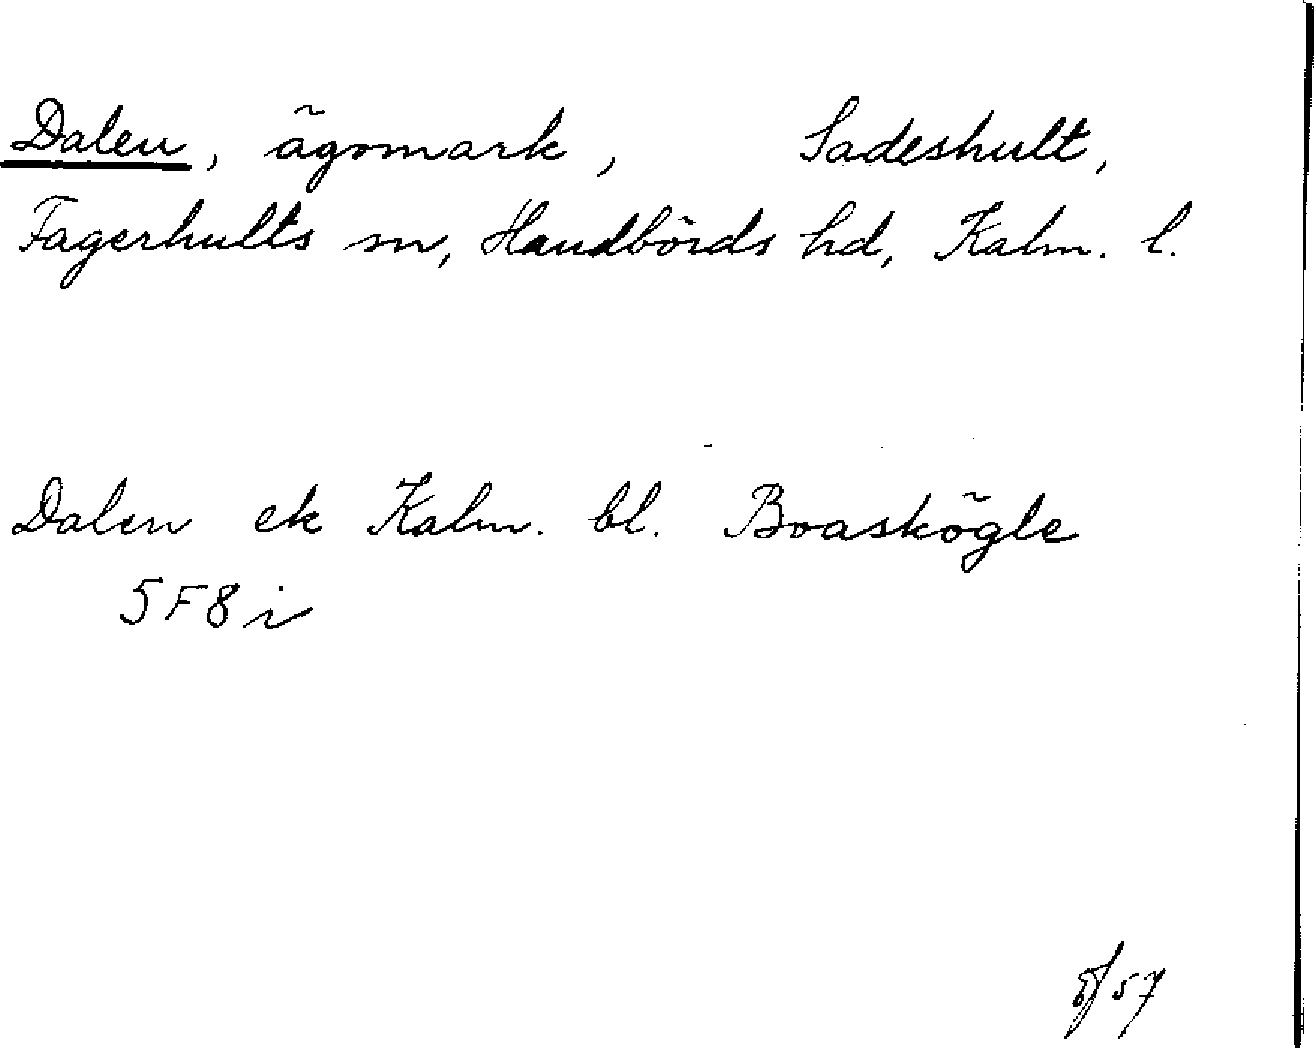 Dalen, ägomark, Sadeshult,
Fagerhults sn, Handbörds hd, Kalm. l.
Dalen ek Kalm. bl. Boaskögle
5F8i